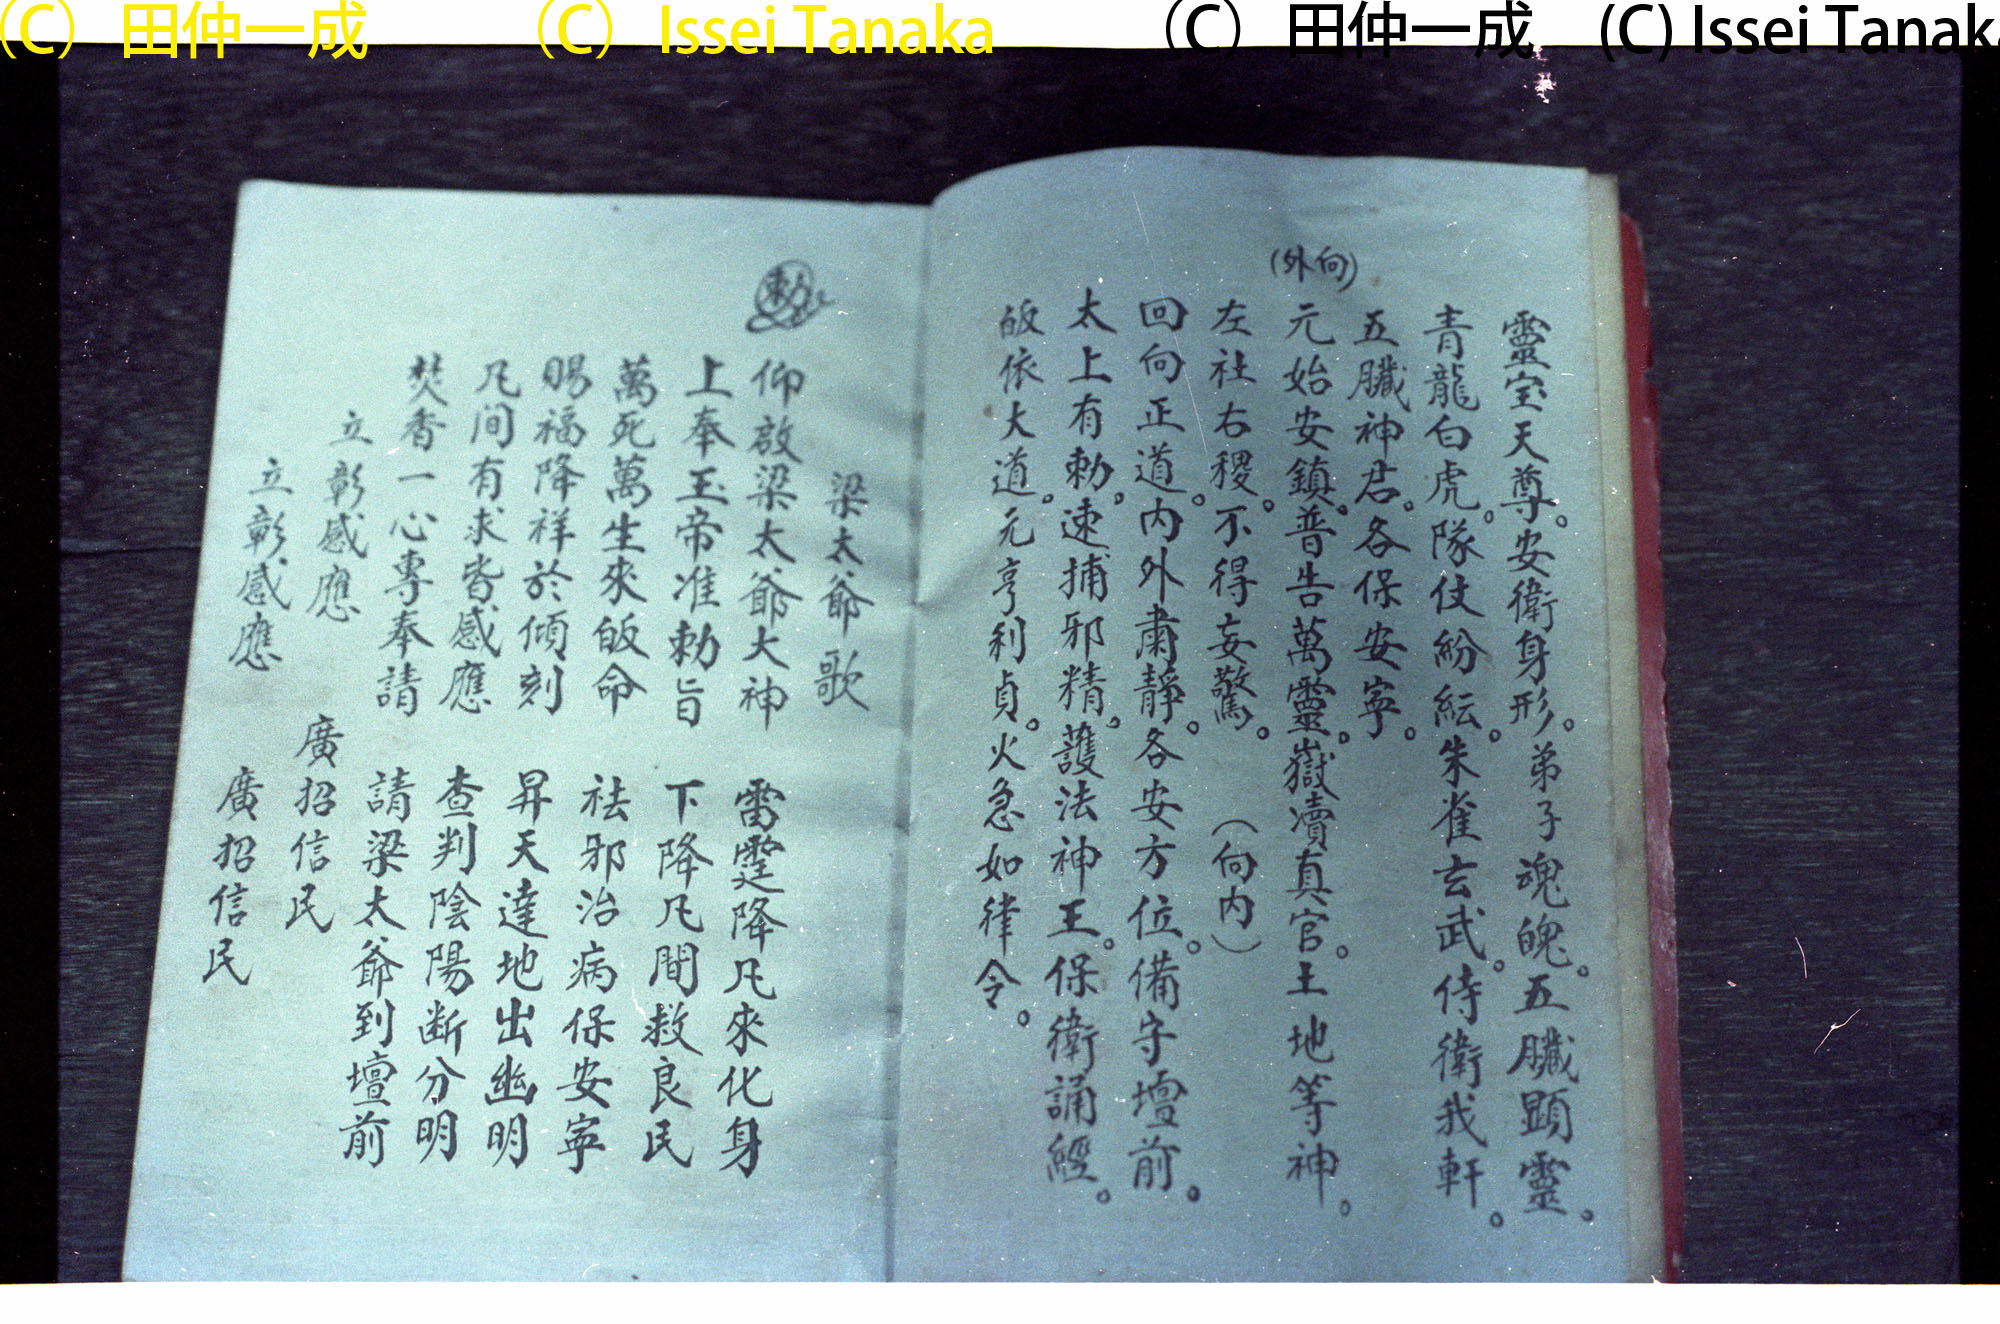 (C) 田仲一成 (C) Issei Tanaka (C) 田仲一成 (C) Issei Tanaka
靈宝天尊。安衛身形。弟子魂魄。五臟顕靈。
青龍白虎。隊仗紛紜。朱雀玄武。侍衛我軒。
五臟神君。各保安寧。
(外向)
元始安鎮。普告萬靈。嶽瀆真官。土地等神。
左社右稷。不得妄驚。(向内)
回向正道。内外肅靜。各安方位。備守壇前。
太上有勅。速捕邪精。護法神王。保衛誦經。
皈依大道。元亨利貞。火急如律令。
梁太爺歌
勅
仰啟梁太爺大神 雷霆降凡來化身
上奉玉帝准勅旨 下降凡間救良民
萬死萬生來皈命 祛邪治病保安寧
賜福降祥於傾刻 昇天達地出幽明
凡间有求皆感應 查判陰陽断分明
焚香一心專奉請 請梁太爺到壇前
立彰感應 廣招信民
立彰感應 廣招信民